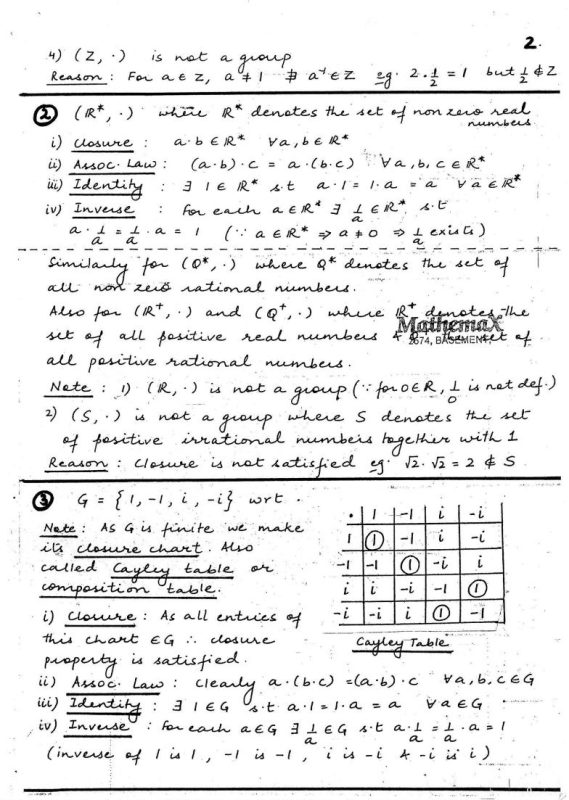 2.
4) (Z, ·) is not a group
Reason : For a ∈ Z, a ≠ 1 ∄ a⁻¹ ∈ Z eg. 2 · 1/2 = 1 but 1/2 ∉ Z
② (R*, ·) where R* denotes the set of non zero real numbers
i) Closure : a·b ∈ R* ∀ a, b ∈ R*
ii) Assoc. Law : (a·b)·c = a·(b·c) ∀ a, b, c ∈ R*
iii) Identity : ∃ 1 ∈ R* s.t a·1 = 1·a = a ∀ a ∈ R*
iv) Inverse : For each a ∈ R* ∃ 1/a ∈ R* s.t
a · 1/a = 1/a · a = 1 (∵ a ∈ R* ⇒ a ≠ 0 ⇒ 1/a exists)
Similarly for (Q*, ·) where Q* denotes the set of
all non zero rational numbers.
Also for (R⁺, ·) and (Q⁺, ·) where R⁺ denotes the
MathemaX
set of all positive real numbers & set of
2674, BASEMENT
all positive rational numbers.
Note : 1) (R, ·) is not a group (∵ for 0 ∈ R, 1/0 is not def.)
2) (S, ·) is not a group where S denotes the set
of positive irrational numbers together with 1
Reason : Closure is not satisfied eg. √2 · √2 = 2 ∉ S
③ G = {1, -1, i, -i} wrt ·
Note : AS G is finite we make
its closure chart. Also
called Cayley table or
composition table.
· 1 -1 i -i
1 1 -1 i -i
-1 -1 1 -i i
i i -i -1 1
-i -i i 1 -1
Cayley Table
i) Closure : As all entries of
this chart ∈ G ∴ closure
property is satisfied.
ii) Assoc. Law : Clearly a·(b·c) = (a·b)·c ∀ a, b, c ∈ G
iii) Identity : ∃ 1 ∈ G s.t a·1 = 1·a = a ∀ a ∈ G
iv) Inverse : For each a ∈ G ∃ 1/a ∈ G s.t a·1/a = 1/a·a = 1
(inverse of 1 is 1, -1 is -1, i is -i & -i is i)